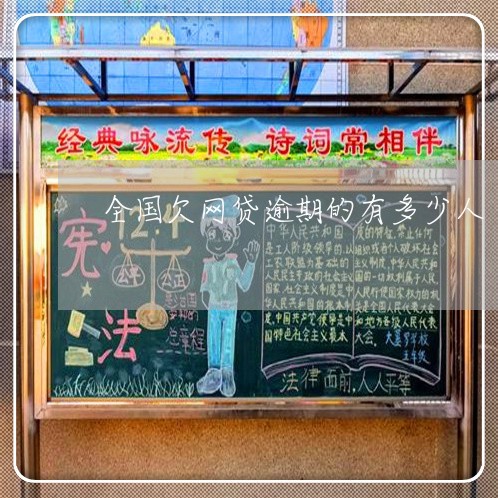 经典咏流传 诗词常相伴
全国欠网贷逾期的有多少人
12.4
宪
法
公平
公正
总章程
中华人民共和国
是工人阶级领导的,以
工农联盟为基础的
人民民主专政的社会主义
国家,社会主义制度是中
华人民共和国的根本制
度,中国共产党领导是中
国特色社会主义最本
质的特征,禁止任何
组织或者个人破坏社会
主义制度,中华人民共和
国的一切权利属于人民,
人民行使国家权力的机
关是全国人民代表大会
和地方各级人民代表
大会.
五年级
法律面前,人人平等